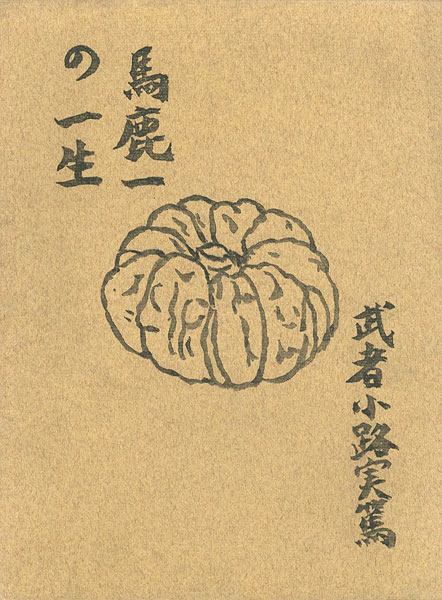 馬鹿一
の一生
武者小路実篤